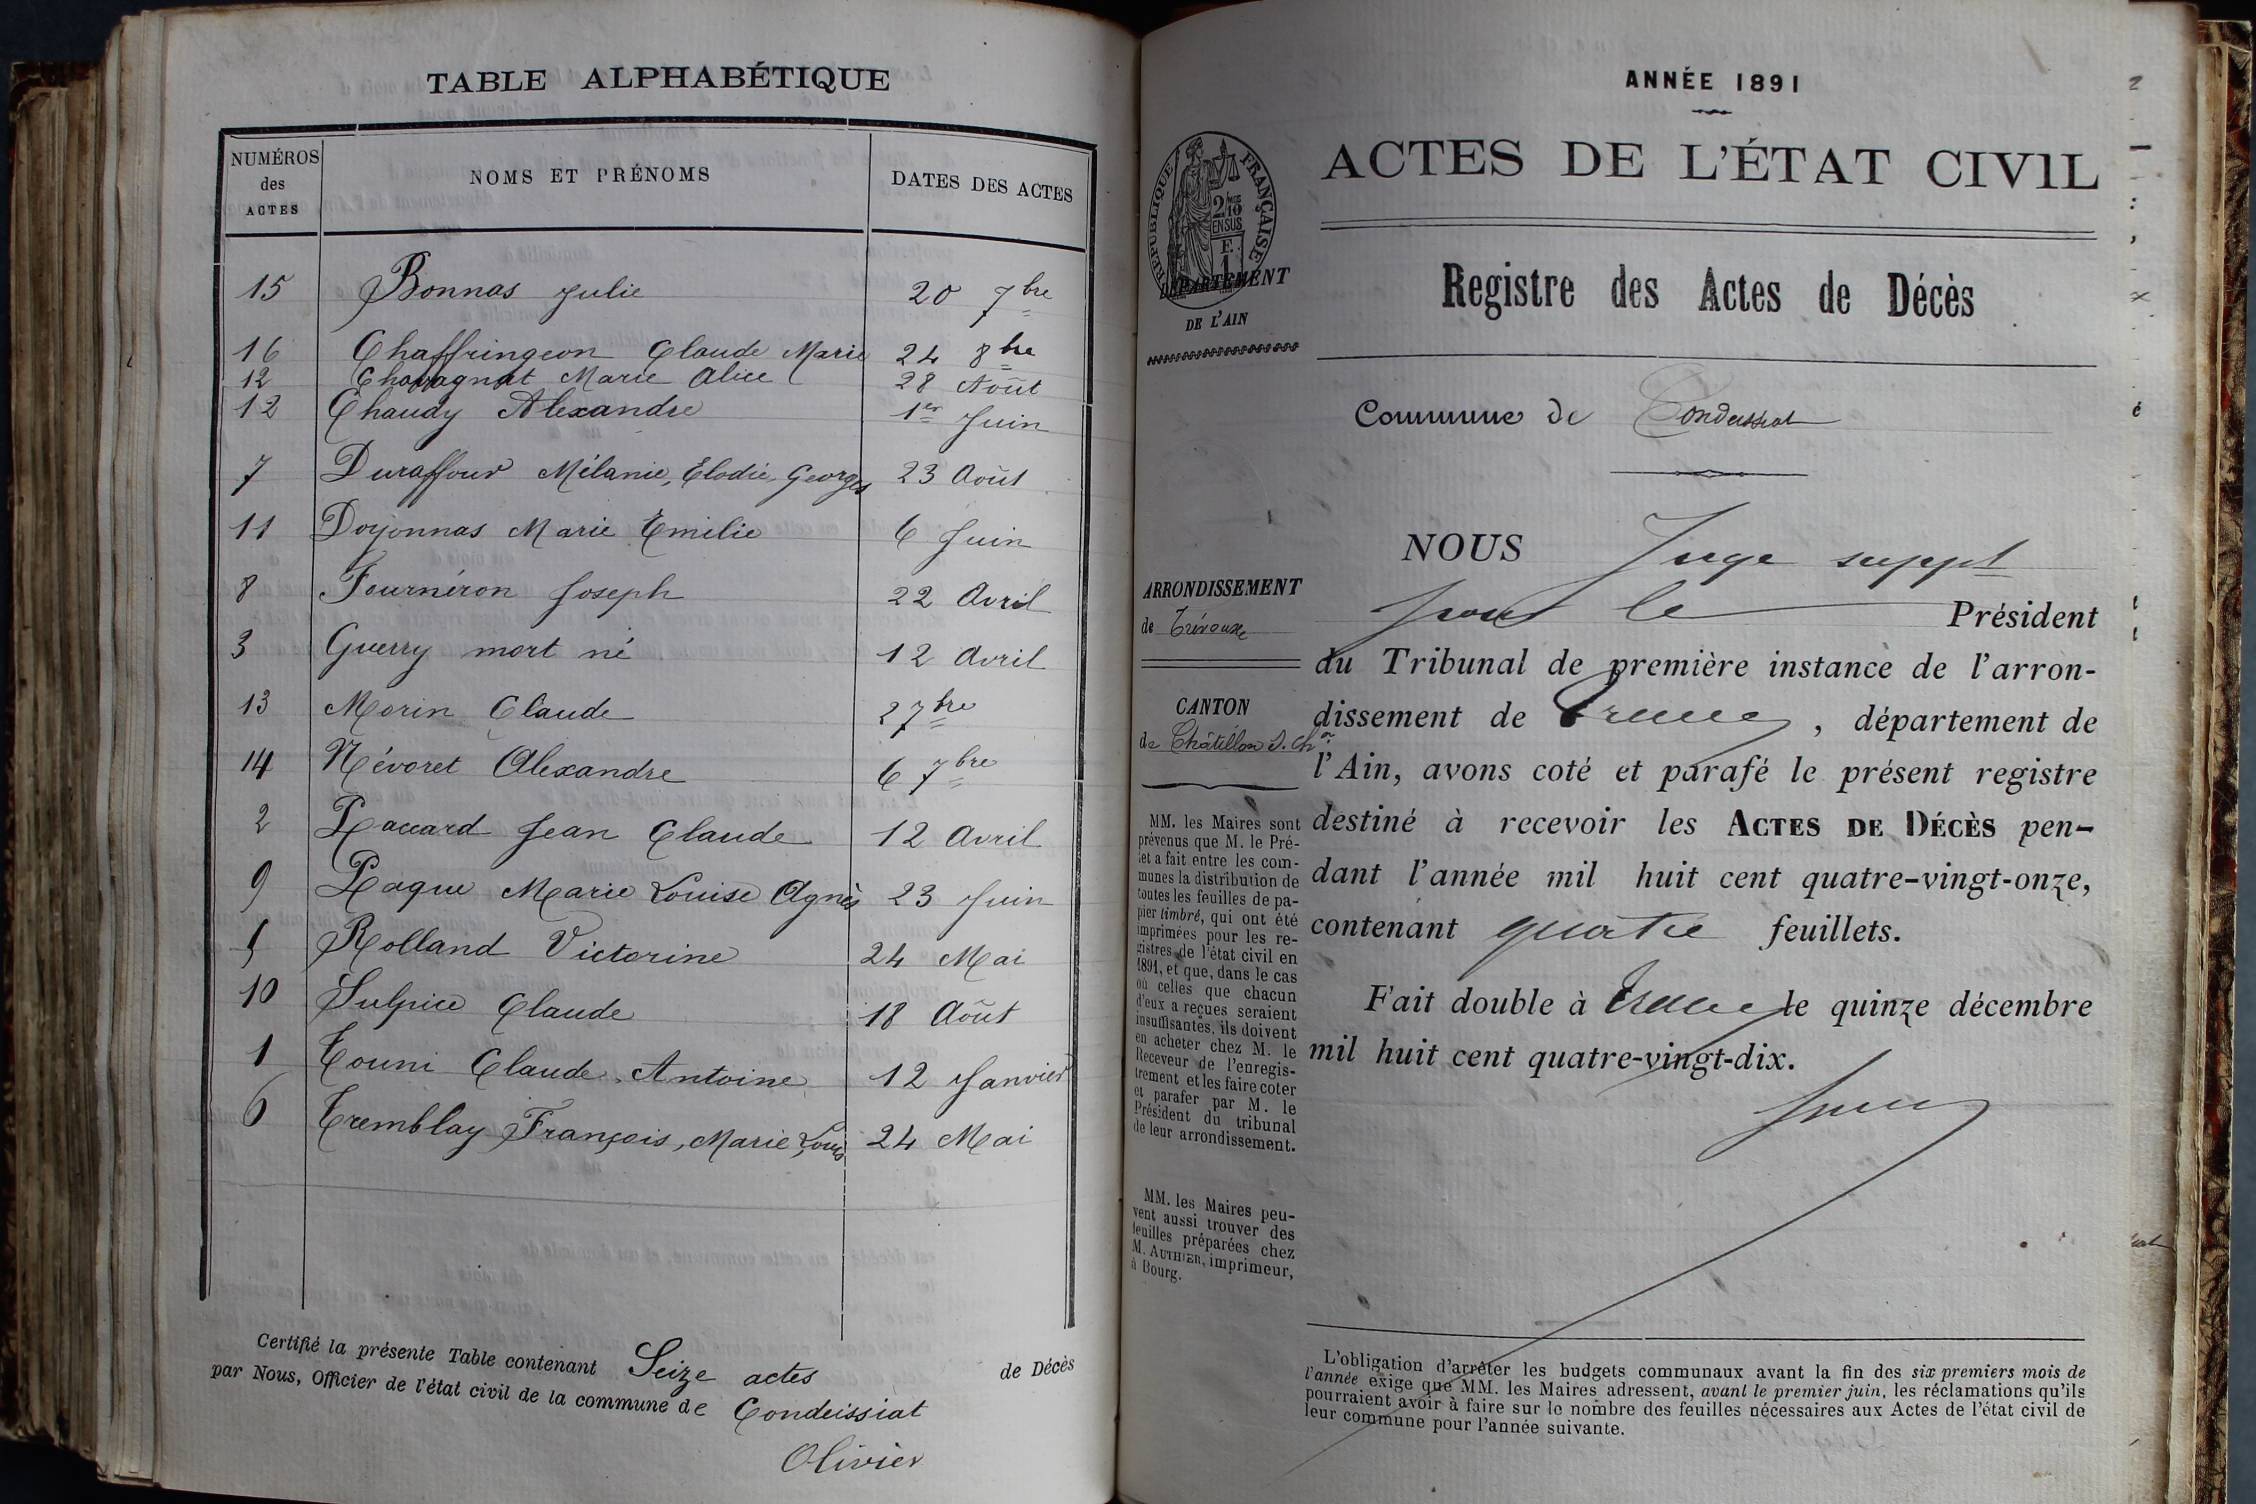 TABLE ALPHABÉTIQUE
NUMÉROS des ACTES NOMS ET PRÉNOMS DATES DES ACTES
15 Bonnas Julie 20 7bre
16 Chaffringeon Claude Marie 24 8bre
12 Chavagnat Marie Alice 28 Août
12 Chaudy Alexandre 1er Juin
7 Duraffour Mélanie, Elodie, Georges 23 Août
11 Doyonnas Marie Emilie 6 Juin
8 Fournéron Joseph 22 Avril
3 Guerry mort né 12 Avril
13 Morin Claude 2 7bre
14 Névoret Alexandre 6 7bre
2 Raccard Jean Claude 12 Avril
9 Raque Marie Louise Agnès 23 Juin
5 Rolland Victorine 24 Mai
10 Sulpice Claude 18 Août
1 Touni Claude Antoine 12 Janvier
6 Tremblay François, Marie Louis 24 Mai
Certifié la présente Table contenant Seize actes de Décès
par Nous, Officier de l'état civil de la commune de Condeissiat
Olivier
ANNÉE 1891
ACTES DE L'ÉTAT CIVIL
RÉPUBLIQUE FRANÇAISE
2/10
EN SUS
E.
1
DÉPARTEMENT
DE L'AIN
Registre des Actes de Décès
Commune de Condeissiat
ARRONDISSEMENT
de Trévoux
CANTON
de Châtillon s. Chne
MM. les Maires sont
prévenus que M. le Pré-
fet a fait entre les com-
munes la distribution de
toutes les feuilles de pa-
pier timbré, qui ont été
imprimées pour les re-
gistres de l'état civil en
1891, et que, dans le cas
où celles que chacun
d'eux a reçues seraient
insuffisantes, ils doivent
en acheter chez M. le
Receveur de l'enregis-
trement et les faire coter
et parafer par M. le
Président du tribunal
de leur arrondissement.
MM. les Maires peu-
vent aussi trouver des
feuilles préparées chez
M. AUTHIER, imprimeur,
à Bourg.
NOUS Juge suppt
pour le Président
du Tribunal de première instance de l'arron-
dissement de Trévoux, département de
l'Ain, avons coté et parafé le présent registre
destiné à recevoir les ACTES DE DÉCÈS pen-
dant l'année mil huit cent quatre-vingt-onze,
contenant quatre feuillets.
Fait double à Trévoux le quinze décembre
mil huit cent quatre-vingt-dix.
L'obligation d'arrêter les budgets communaux avant la fin des six premiers mois de
l'année exige que MM. les Maires adressent, avant le premier juin, les réclamations qu'ils
pourraient avoir à faire sur le nombre des feuilles nécessaires aux Actes de l'état civil de
leur commune pour l'année suivante.